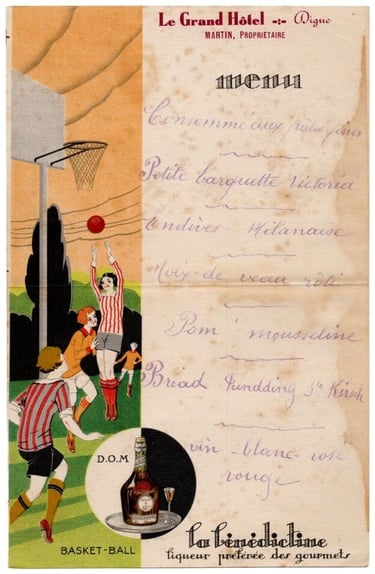 Le Grand Hôtel -:- Digne
MARTIN, PROPRIÉTAIRE
menu
Consommé aux pâtes fines
Petite barquette Victoria
Endives Milanaise
Noix de veau rôti
Pom' mousseline
Bread Pundding Sce Kirsch
vin - blanc - rosé
rouge
D.O.M
la bénédictine
liqueur préférée des gourmets
BASKET-BALL